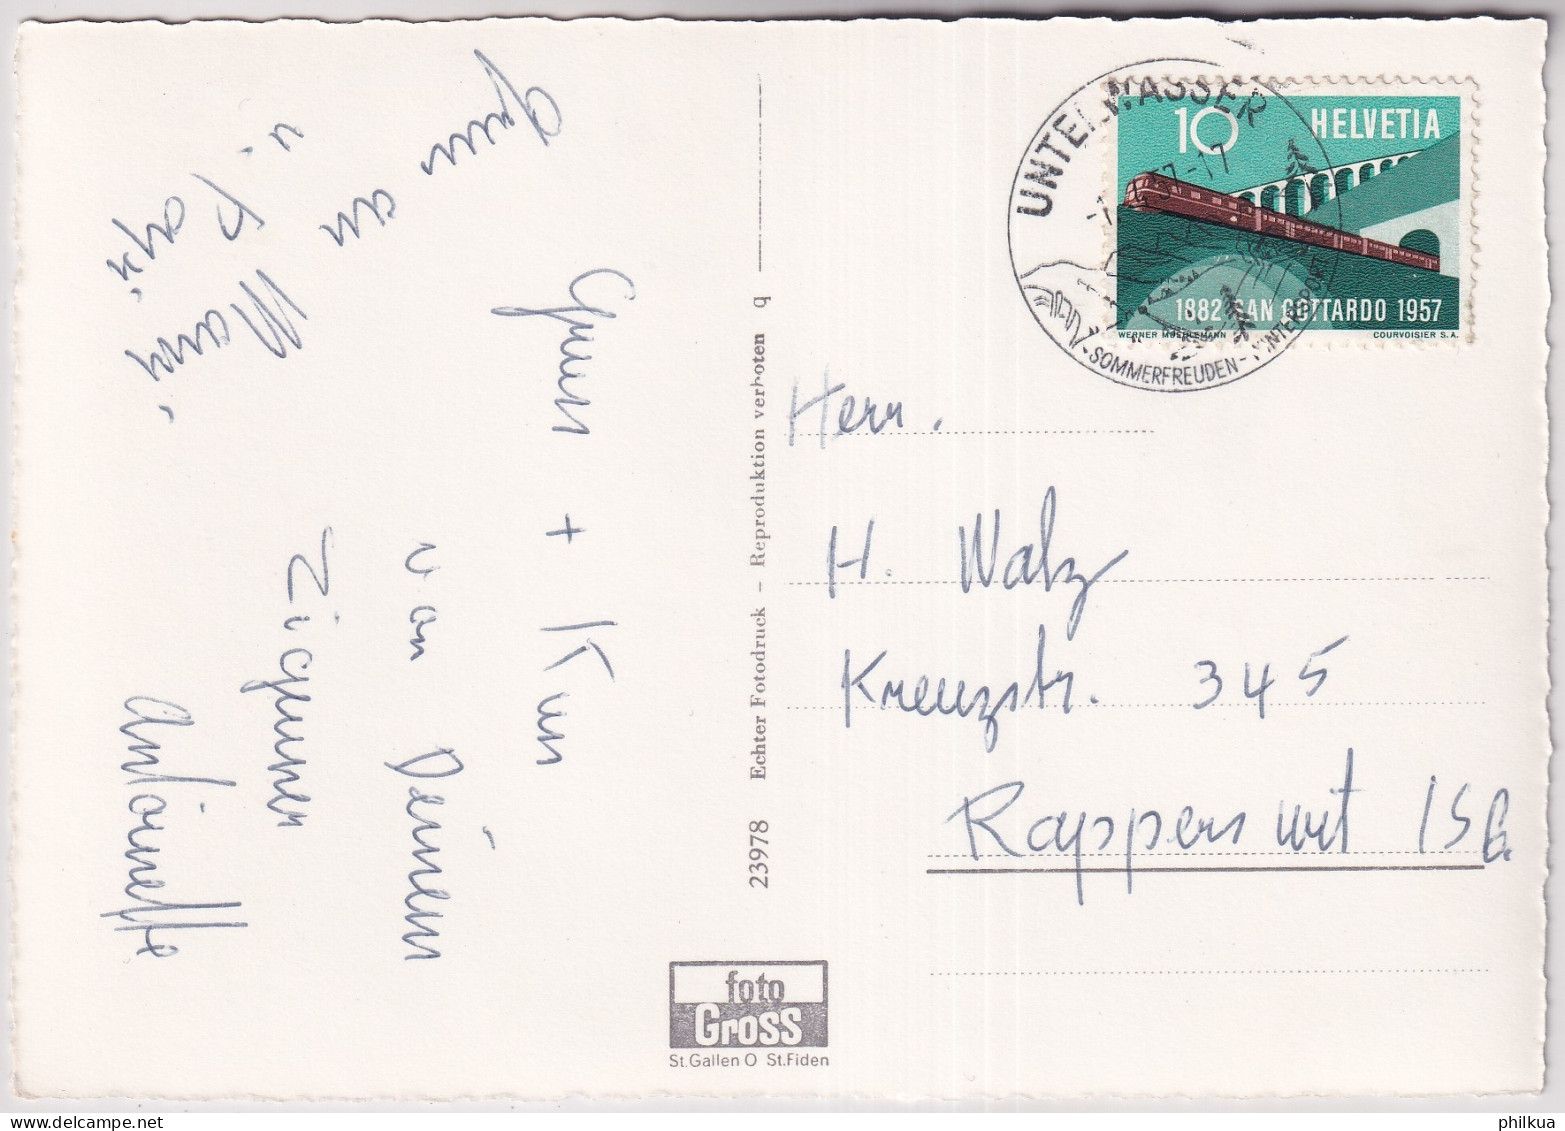 UNTERWASSER
SOMMERFREUDEN-WINTERSPORT
10 HELVETIA
1882 SAN GOTTARDO 1957
WERNER MUEHLEMANN COURVOISIER S.A.
Gruss + Kuss
von Deinem
Zigeuner
Antoinette
Gruss an
u.
23978 Echter Fotodruck – Reproduktion verboten q
Herr.
H. Walz
Kreuzstr. 345
Rapperswil /SG.
foto
Gross
St.Gallen O St.Fiden
philkua.com